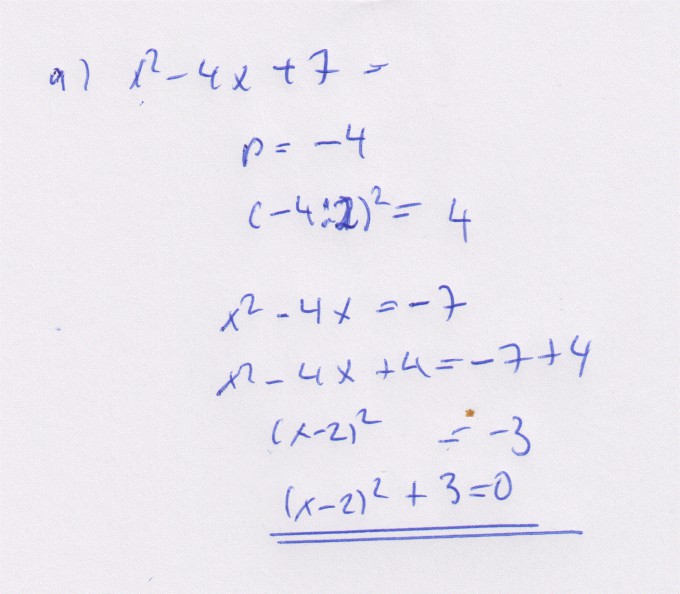 a) x² - 4x + 7 =
p = -4
(-4:2)² = 4
x² - 4x = -7
x² - 4x + 4 = -7 + 4
(x-2)² = -3
(x-2)² + 3 = 0